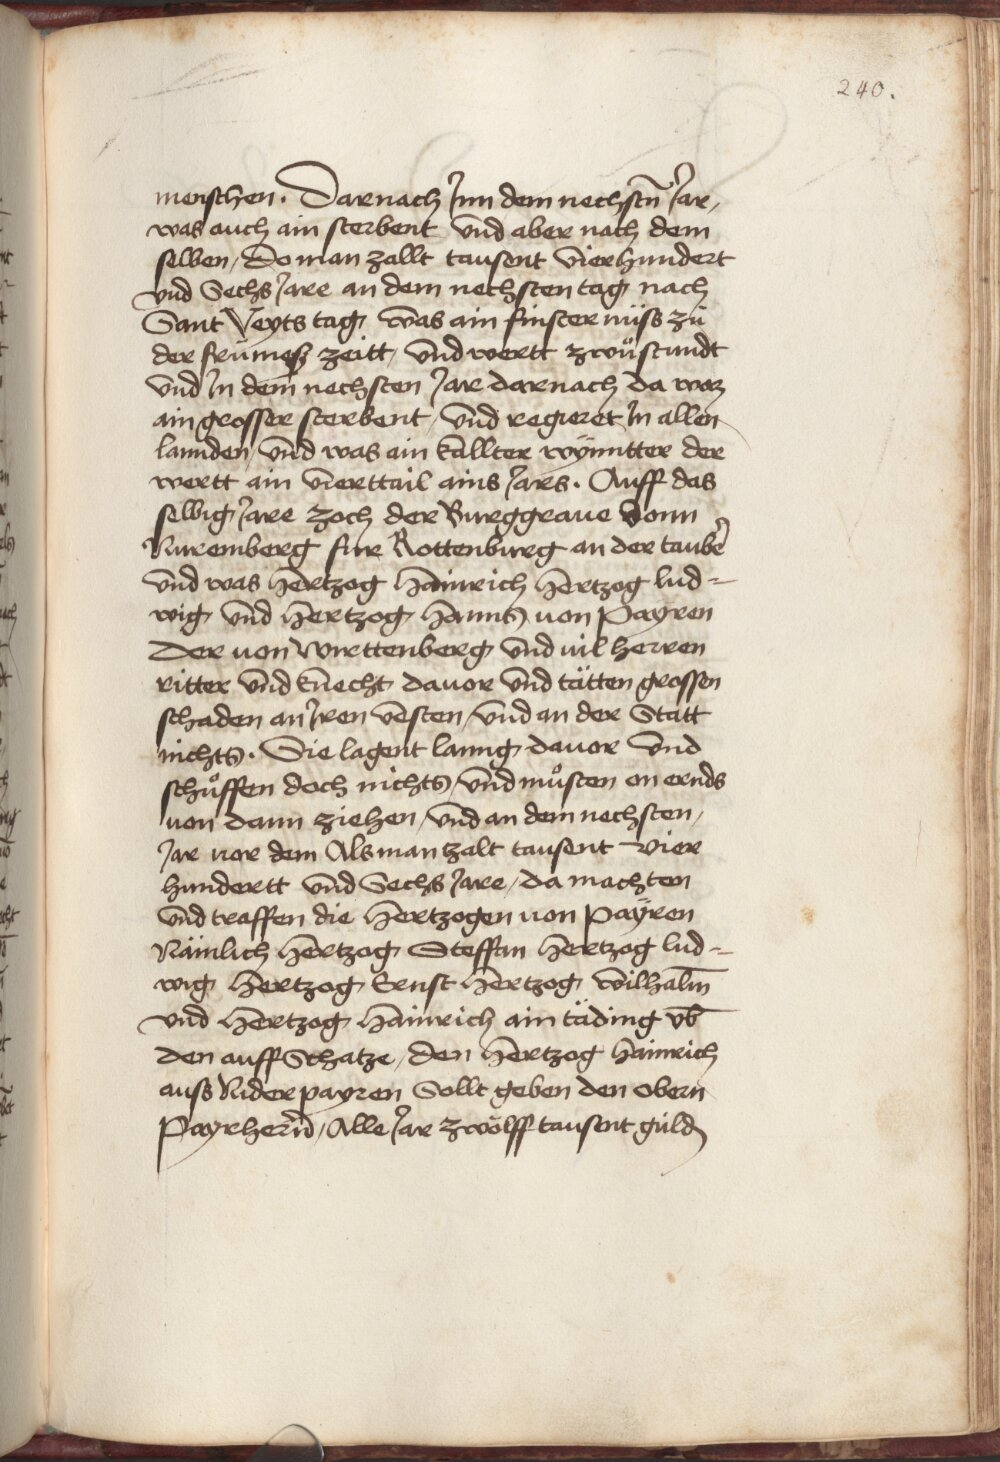 240.
menschen. Darnach Jnn dem nechstn̄ Jar,
was auch ain sterbent vnd aber nach dem
selben, Do man zallt tausent vierhundert
vnd Sechs Jare an dem nechsten tag nach
Sant Veyts tag was ain finsternüss zů
der frümeß zeitt, vnd wertt zwů stundt
vnd Jn dem nechsten Jar darnach da waz
ain grosser sterbent, vnd regieret Jn allen
lannden, vnd was ain kallter wynntter der
wertt ain vierttail ains Jars. Auff das
selbig Jare zoch der Burggraue vonn
Nuremberg fur Rottenburg an der taubē
vnd was hertzog Hainrich hertzog lud=
wig vnd hertzog Hanns von Payren
Der von Wirttenberg vnd vil herren
ritter vnd knecht dauor vnd tätten grossen
schaden an Jren vesten, vnd an der Statt
nichts. Sie lagent lanng dauor vnd
schůffen doch nichts, vnd můsten on ennds
von dann ziehen, vnd an dem nechsten,
Jar vor dem Als man zalt tausent vier
hundertt vnd Sechs Jare, da machten
vnd traffen die hertzogen von payren
Nämlich hertzog Steffan hertzog lud=
wig hertzog Ernst hertzog wilhalm̄
vnd hertzog Hainrich ain täding vb̄
den auffSchatze, den hertzog Hainrich
auss Nider payren Sollt geben den obern
Payrhern̄, Alle Jar zwölff tausent guld